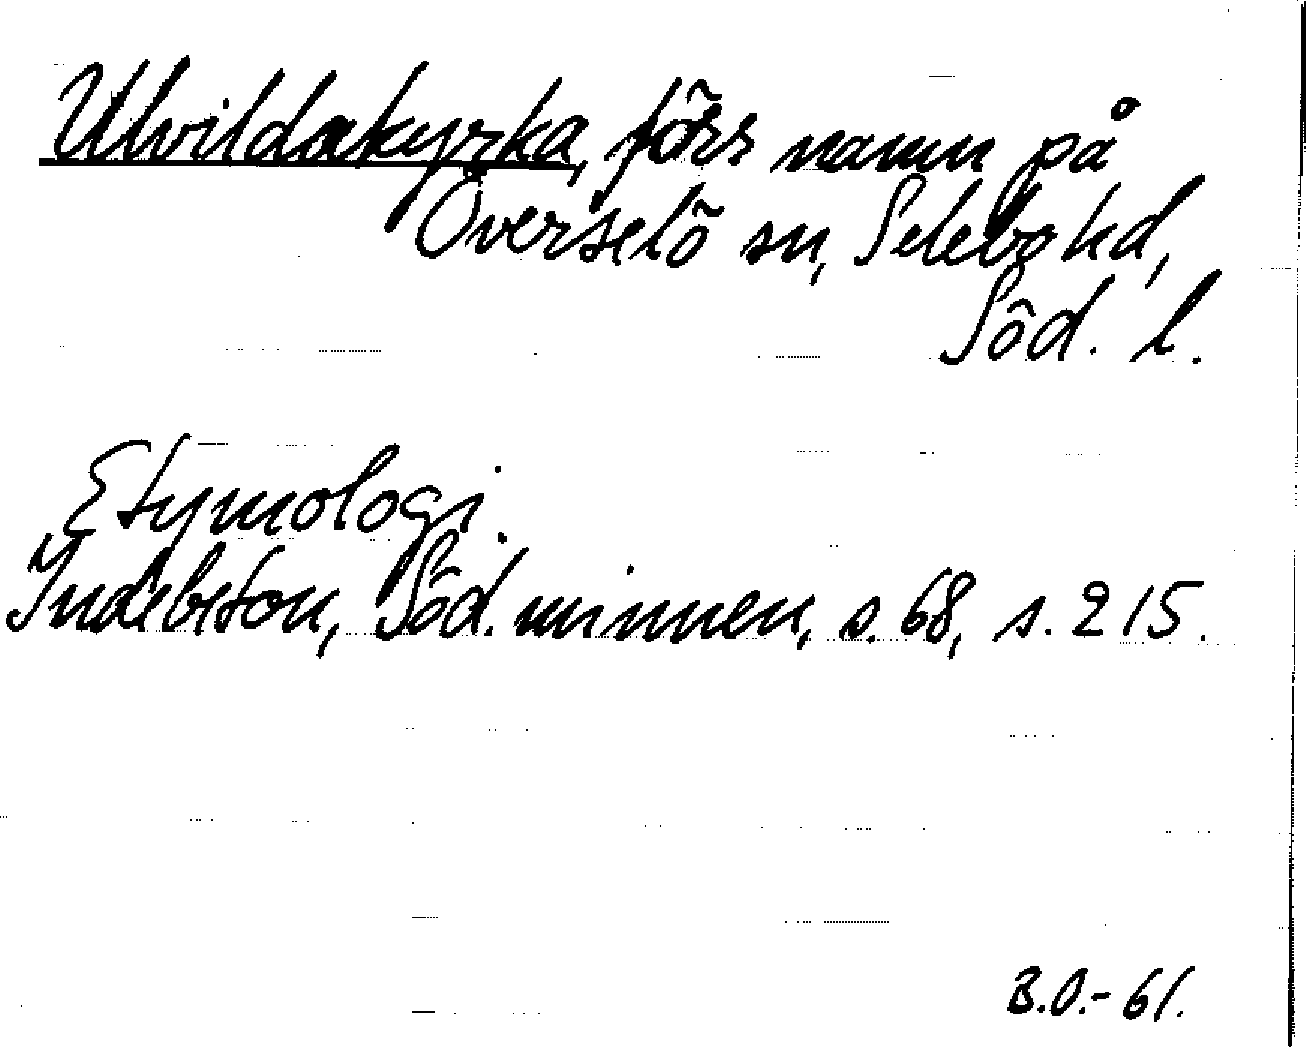 Ulvildakyrka, förr namn på
Överselö sn, Selebo hd,
Söd. l.
Etymologi.
Indebetou, Söd. minnen, s. 68, s. 215.
B.O.-61.